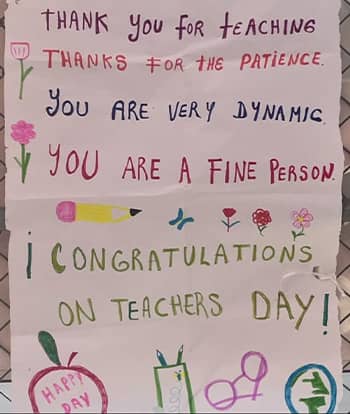 THANK YOU FOR TEACHING
THANKS FOR THE PATIENCE.
YOU ARE VERY DYNAMIC.
YOU ARE A FINE PERSON.
¡ CONGRATULATIONS
ON TEACHERS DAY!
HAPPY
DAY